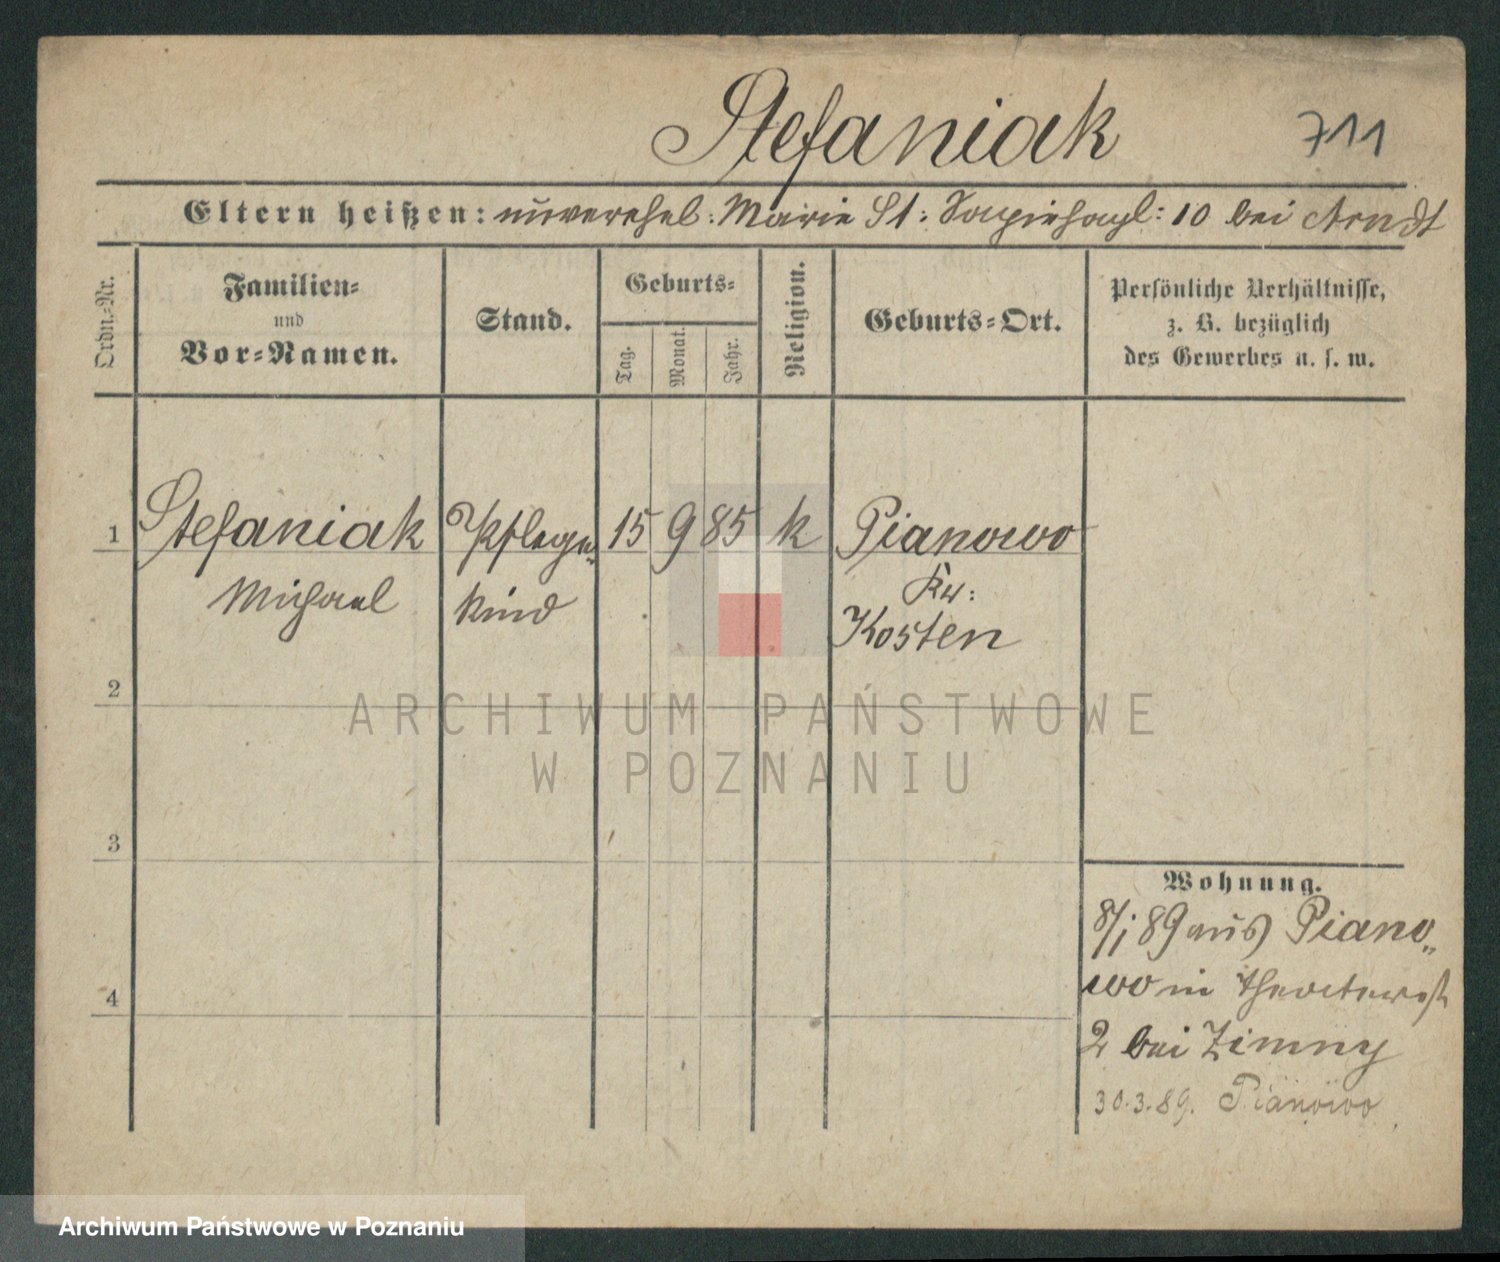 Stefaniak
711
Eltern heißen: unverehel: Marie St: Sapiehapl: 10 bei Arndt
Ordn.-Nr.
Familien-
und
Vor-Namen.
Stand.
Geburts-
Tag.
Monat.
Jahr.
Religion.
Geburts-Ort.
Persönliche Verhältnisse,
z. B. bezüglich
des Gewerbes u. s. w.
1 Stefaniak Pflege- 15 9 85 k Pianowo
Michael kind Kr:
Kosten
2
3
4
Wohnung.
8/1 89 aus Piano„
wo in
2 bei Zimny
30.3.89. Pianowo
ARCHIWUM PAŃSTWOWE
W POZNANIU
Archiwum Państwowe w Poznaniu